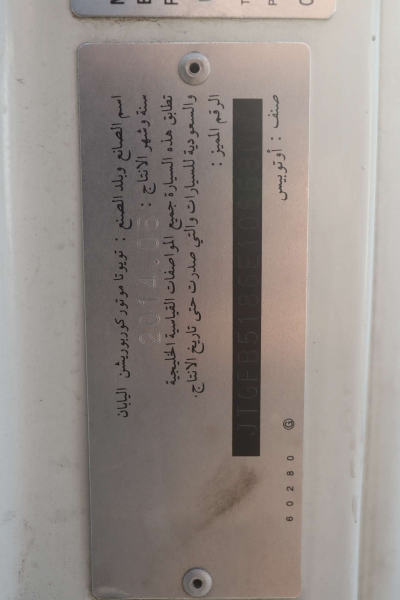 اسم الصانع وبلد الصنع : تويوتا موتور كوربوريشن اليابان
سنة وشهر الانتاج :
تطابق هذه السيارة جميع المواصفات القياسية الخليجية
والسعودية للسيارات والتي صدرت حتى تاريخ الانتاج.
الرقم المميز :
صنف : أوتوبيس
60280 G